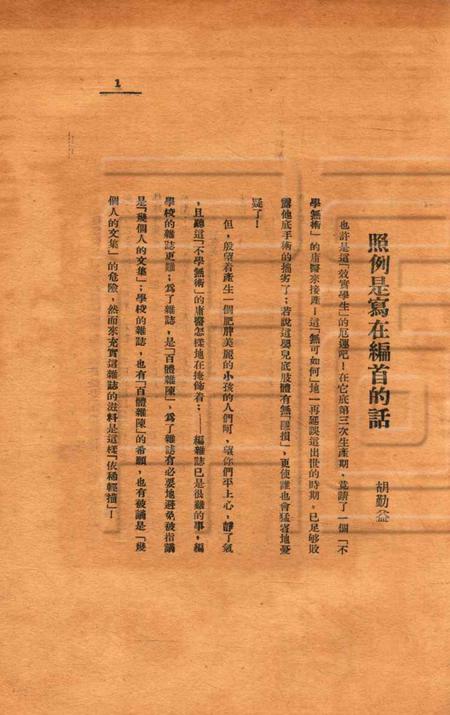 照例是寫在編首的話
胡勤益
也許是這「效實學生」的厄運吧！在它底第三次生產期，竟請了一個「不
學無術」的庸醫來接產！這「無可如何」地一再延誤這出世的時期，已足够敗
露他底手術的拙劣了；若說這嬰兒底肢體有無「虧損」，更使誰也會猛害地憂
疑了！
但，殷望着產生一個肥胖美麗的小孩的人們呵，望你們平上心，靜了氣
，且聽這「不學無術」的庸醫怎樣地在掩飾着：——編雜誌已是很難的事，編
學校的雜誌更難；爲了雜誌，是「百體雜陳」，爲了雜誌有必要地避免被指講
是「幾個人的文集」；學校的雜誌，也有「百體雜陳」的希願，也有被講是「幾
個人的文集」的危險，然而來充實這雜誌的滋料是這樣「依稀輕描」！
1